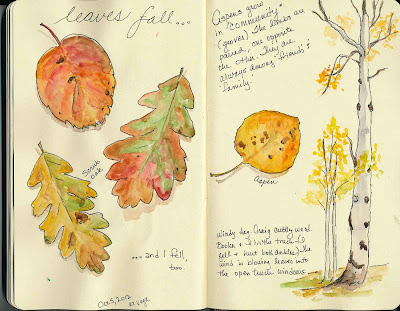 leaves fall...
Scrub
oak
...and I fell,
too.
Oct 5, 2012
Aspens grow
in "community"
(groves). The limbs are
paired, one opposite
the other. They are
always among "friends" &
family.
Aspen
Windy day. Craig cutting wood.
+ I in the truck (I
fell + hurt both ankles). The
wind is blowing leaves into
the open truck windows.